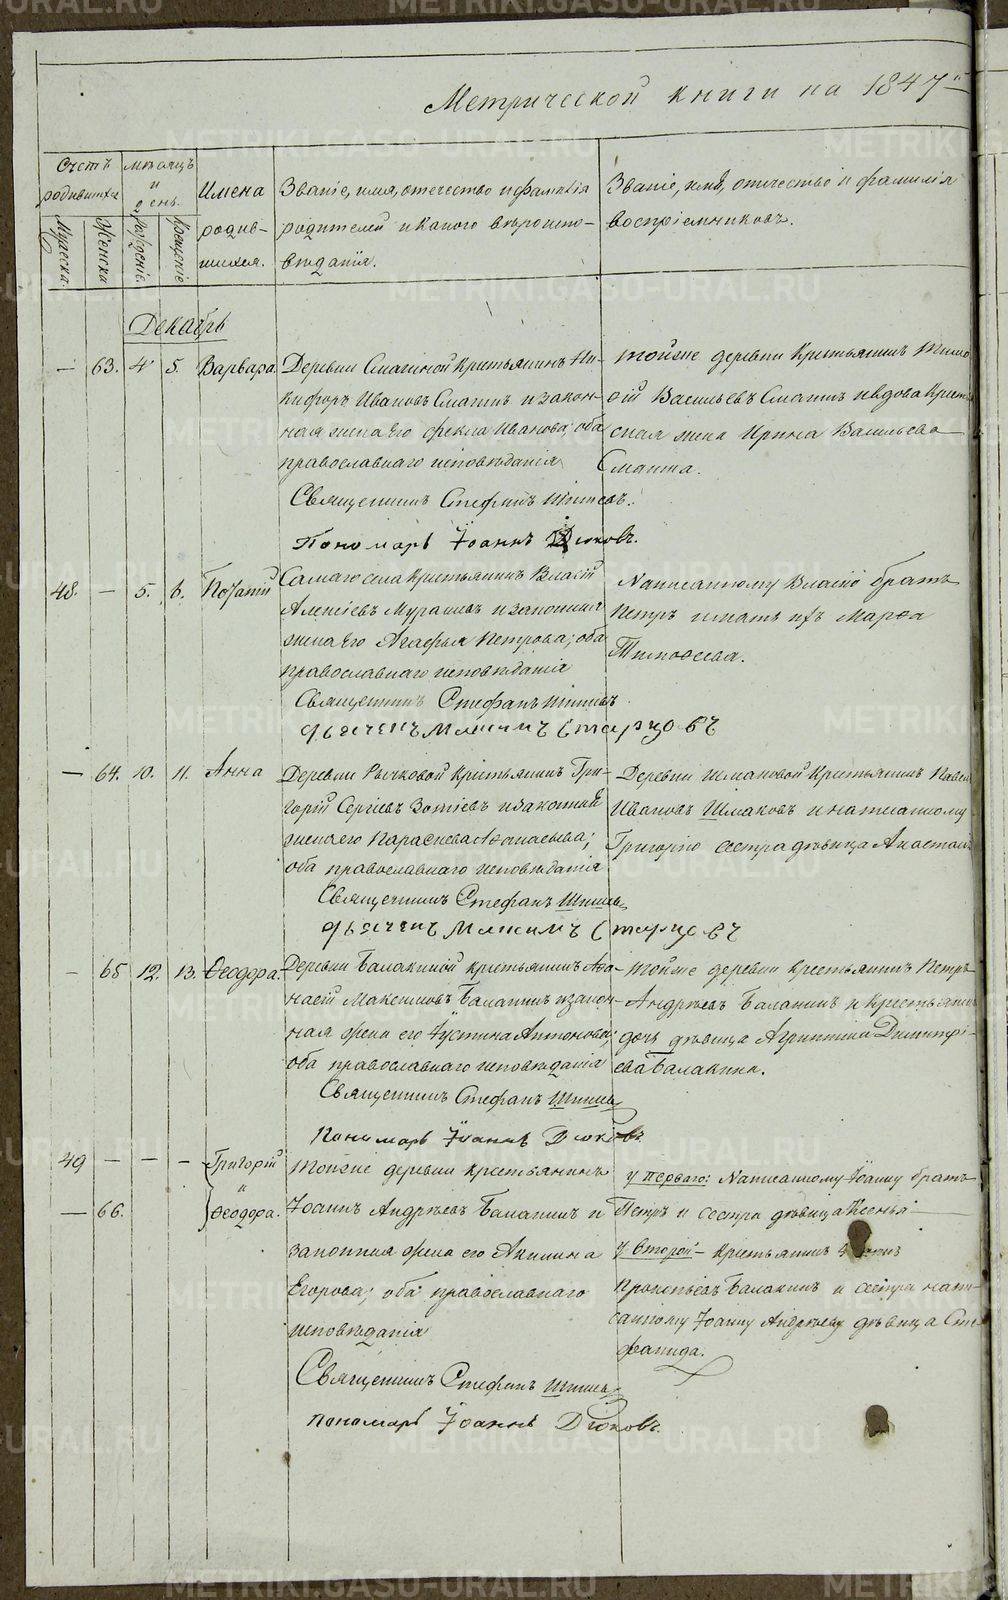 Метрической книги на 1847й
Счетъ родившихся
Мужеска
Женска
Мѣсяцъ и день
Рожденіе
Крещеніе
Имена родив-
шихся.
Званіе, имя, отчество и фамилія
родителей и какого вѣроиспо-
вѣданія.
Званіе, имя, отчество и фамилія
воспріемниковъ.
Декабрь
— 63. 4 5. Варвара.
Деревни Смагиной крестьянинъ Ни-
кифоръ Ивановъ Смагинъ и закон-
ная жена его Фекла Иванова; оба
православнаго исповѣданія
Священникъ Стефанъ
Пономарь Іоаннъ Дюковъ.
тойже деревни крестьянинъ Тимо-
ѳій Васильевъ Смагинъ и вдова крестьян-
ская жена Ирина Васильева
Смагина.
48. — 5. 6. Потапій
Самаго села крестьянинъ Власій
Алексіевъ Мурашевъ и законная
жена его Агафья Петрова; оба
православнаго исповѣданія
Священникъ Стефанъ
Дьячекъ Максимъ Старцовъ
Написанному Власію братъ
Петръ и мать ихъ Марѳа
Тимоѳеева.
— 64. 10. 11. Анна
Деревни Рычковой крестьянинъ Гри-
горій Сергіевъ Зотіевъ и законная
жена его Параскева Аѳанасьева;
оба православнаго исповѣданія
Священникъ Стефанъ
Дьячекъ Максимъ Старцовъ
Деревни Шмаковой крестьянинъ Павелъ
Ивановъ Шмаковъ и написанному
Григорію сестра дѣвица Анастасія
— 65 12. 13. Ѳеодора.
Деревни Балакиной крестьянинъ Аѳа-
насій Максимовъ Балакинъ и закон-
ная жена его Іустина Антонова;
оба православнаго исповѣданія
Священникъ Стефанъ
Пономарь Іоаннъ Дюковъ
тойже деревни крестьянинъ Петръ
Андрѣевъ Балакинъ и крестьянин
дочь дѣвица Агриппина Димитрі-
ева Балакина.
49 — — — Григорій
и
— 66. Ѳеодора.
Тойже деревни крестьянинъ
Іоаннъ Андрѣевъ Балакинъ и
законная жена его Акилина
Егорова; оба православнаго
исповѣданія
Священникъ Стефанъ
Пономарь Іоаннъ Дюковъ.
у перваго: Написанному Іоанну братъ
Петръ и сестра дѣвица Ксенія
у второй — крестьянинъ
Прокопьевъ Балакинъ и сестра напи-
санному Іоанну Андрѣеву дѣвица Сте-
фанида.
METRIKI.GASO-URAL.RU